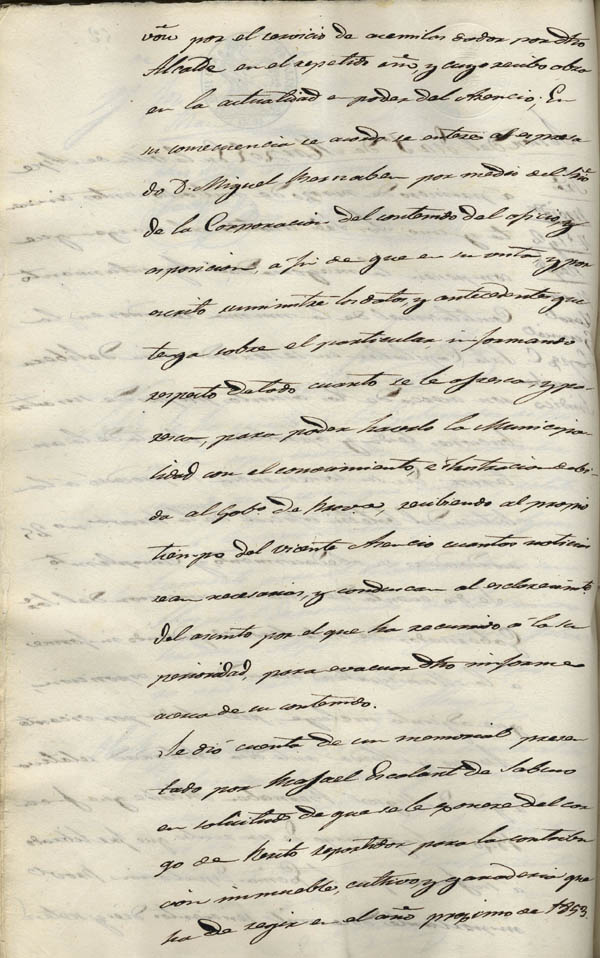 por el servicio de acemilas dador por dho
Alcalde en el repetido añ, y cuyo recibo obra
en la actualidad en poder del Asencio; En
su consecuencia se acordó se entere al espresa
do D. Miguel Bernabeu por medio del Srio
de la Corporacion del contenido del oficio y
esposicion, a fin de que en su vista, y por
escrito suministre los datos, y antecedentes que
tenga sobre el particular informando
respecto de todo cuanto se le ofresca, y pa-
resca, para poder hacerlo la Municipa-
lidad con el conocimiento, e ilustracion debi-
da al Gobo de Prova, recibiendo al propio
tiempo del Vicente Asencio cuantas noticias
sean necesarias, y conduscan al esclarecimto
del asunto por el que ha recurrido a la su
perioridad, para evacuar dho informe
acerca de su contenido.
Se dió cuenta de un memorial presen
tado por Rafael Escolant de Sabino
en solicitud de que se le exonere del car
go de Perito repartidor para la contribu
ción inmueble, cultivo, y ganaderia que
ha de regir en el año proximo de 1853.